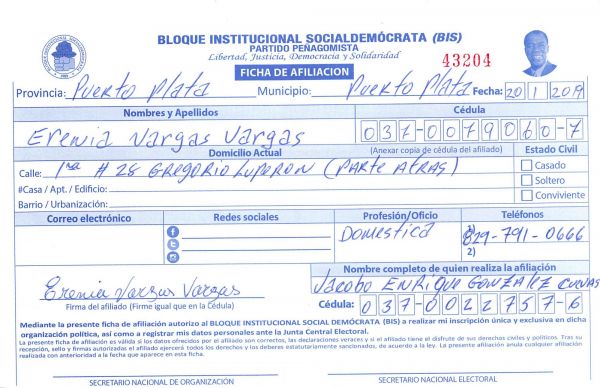 BLOQUE INSTITUCIONAL SOCIALDEMÓCRATA (BIS)
PARTIDO PEÑAGOMISTA
Libertad, Justicia, Democracia y Solidaridad
43204
FICHA DE AFILIACION
Provincia: Puerto Plata Municipio: Puerto Plata Fecha: 20 1 2019
Nombres y Apellidos Cédula
Erenia Vargas Vargas 037-0079060-7
Domicilio Actual (Anexar copia de cédula del afiliado) Estado Civil
Calle: 1ra # 28 GREGORIO LUPERON (PARTE ATRAS) Casado
#Casa / Apt. / Edificio: Soltero
Barrio / Urbanización: Conviviente
Correo electrónico Redes sociales Profesión/Oficio Teléfonos
Domestica 1) 829-791-0666
2)
Nombre completo de quien realiza la afiliación
Erenia Vargas Vargas Jacobo ENRIQUE GONZALEZ CUEVAS
Firma del afiliado (Firme igual que en la Cédula) Cédula: 037-0022757-6
Mediante la presente ficha de afiliación autorizo al BLOQUE INSTITUCIONAL SOCIAL DEMÓCRATA (BIS) a realizar mi inscripción única y exclusiva en dicha
organización política, así como a registrar mis datos personales ante la Junta Central Electoral.
La presente ficha de afiliación es válida si los datos ofrecidos por el afiliado son correctos, las declaraciones veraces y si el afiliado tiene el disfrute de sus derechos civiles y políticos. Tras su
recepción, sello y firmas autorizadas el afiliado ejercerá todos los derechos y los deberes estatutariamente sancionados, de acuerdo a la ley. La presente afiliación anula cualquier afiliación
realizada con anterioridad a la fecha que aparece en esta ficha.
SECRETARIO NACIONAL DE ORGANIZACIÓN SECRETARIO NACIONAL ELECTORAL